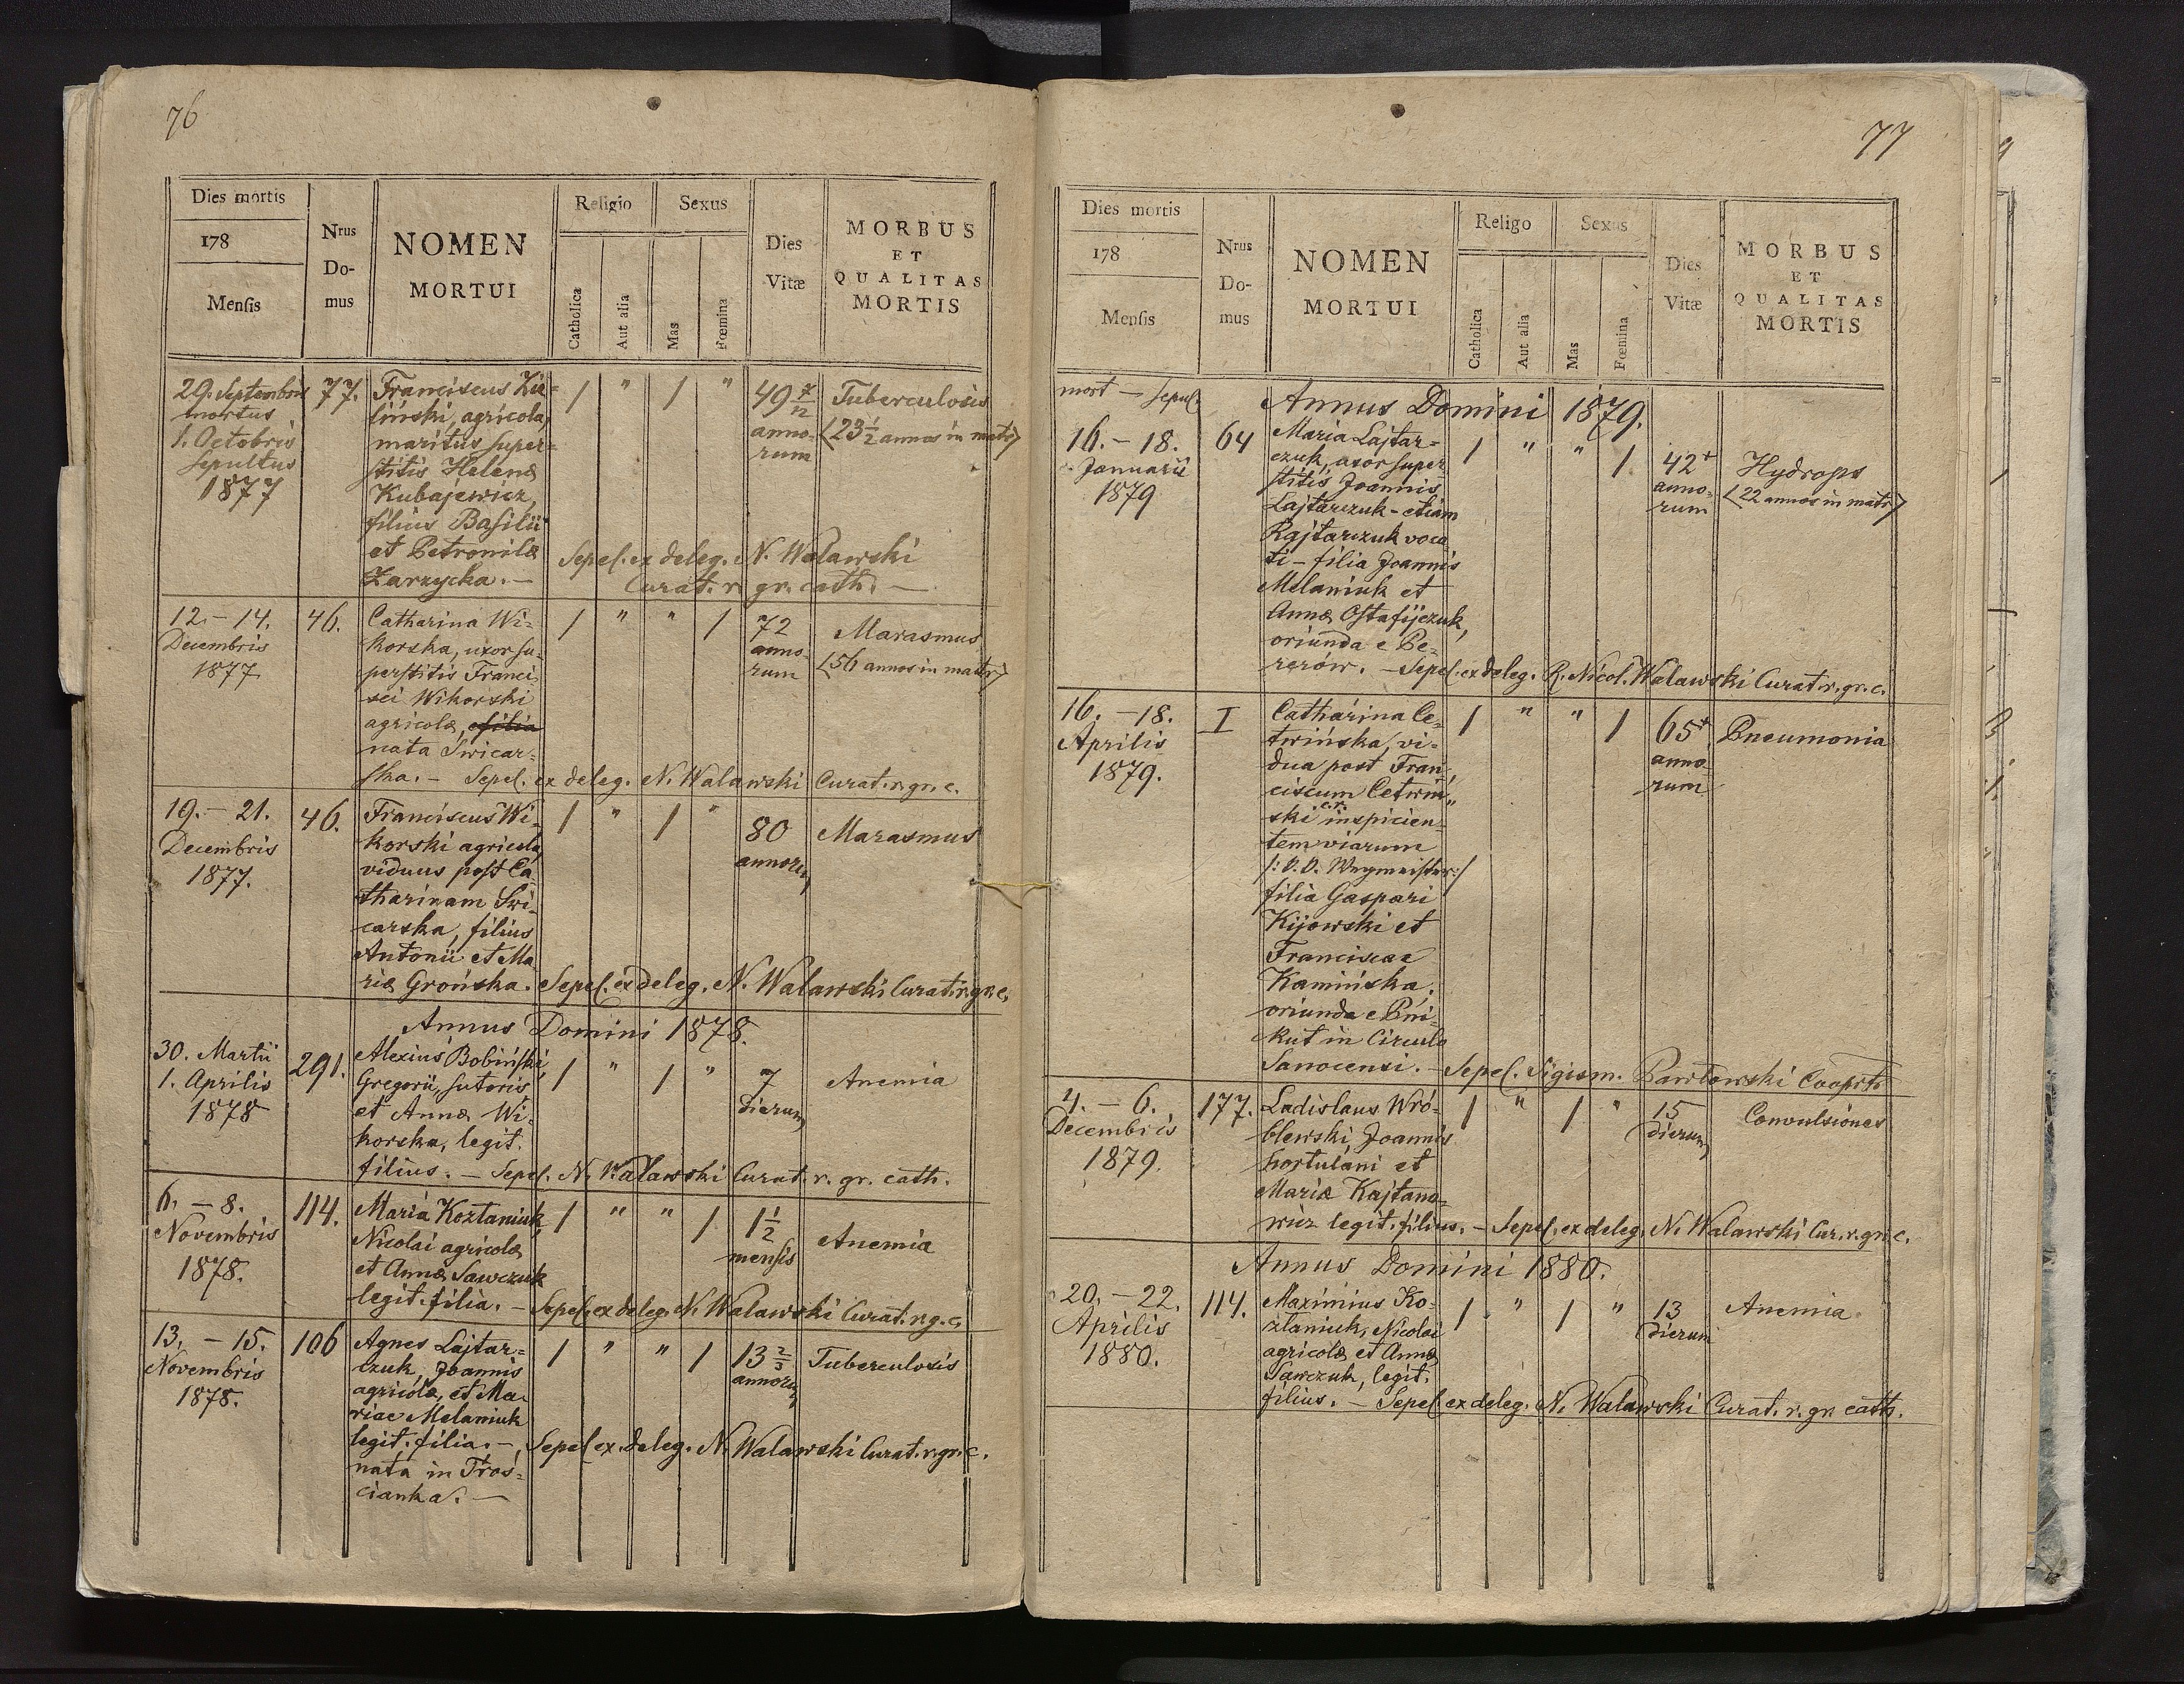 76
Dies mortis
178
Mensis
Nrus
Do-
mus
NOMEN
MORTUI
Religio
Catholica
Aut alia
Sexus
Mas
Fœmina
Dies
Vitæ
MORBUS
ET
QUALITAS
MORTIS
29. Septembris
mortus
1. Octobris
sepultus
1877
77.
Franciscus Zie-
liński, agricola,
maritus super-
stitis Helenæ
Kubajewicz,
filius Basilii
et Petronilæ
Zarzycka. —
1 " 1 "
49 7/12
anno-
rum
Tuberculosis
(23 1/2 annos in matr)
Sepel. ex deleg. N. Walawski
Curat. r. gr. cath. —
12. – 14.
Decembris
1877
46.
Catharina Wi-
korska, uxor su-
perstitis Franci-
sci Wikorski
agricolæ, filia
nata Swicar-
ska. – Sepel. ex deleg. N. Walawski Curat. r. gr. c.
1 " " 1
72
anno-
rum
Marasmus
(56 annos in matr)
19. – 21.
Decembris
1877.
46.
Franciscus Wi-
korski agricola,
viduus post Ca-
tharinam Swi-
carska, filius
Antonii et Ma-
riæ Grońska. Sepel. ex deleg. N. Walawski Curat. r. gr. c.
1 " 1 "
80
annorum
Marasmus
Annus Domini 1878.
30. Martii
1. Aprilis
1878
291.
Alexius Bobiński,
Gregorii, sutoris
et Annæ Wi-
korska, legit.
filius. – Sepel. N. Walawski Curat. r. gr. cath.
1 " 1 "
7
dierum
Anemia
6. – 8.
Novembris
1878.
114.
Maria Kozłaniuk,
Nicolai agricolæ
et Annæ Sawczuk
legit. filia. – Sepel. ex deleg. N. Walawski Curat. r. g. c.
1 " " 1
1 1/2
mensis
Anemia
13. – 15.
Novembris
1878.
106
Agnes Lajtar-
czuk, Joannis
agricolæ, et Ma-
riae Melaniuk
legit. filia. – Sepel. ex deleg. N. Walawski Curat. r. gr. c.
nata in Troś-
cianka. —
1 " " 1
13 2/3
annorum
Tuberculosis
77
Dies mortis
178
Mensis
Nrus
Do-
mus
NOMEN
MORTUI
Religo
Catholica
Aut alia
Sexus
Mas
Fœmina
Dies
Vitæ
MORBUS
ET
QUALITAS
MORTIS
mort – sepul.
Annus Domini 1879.
16. – 18.
Januarii
1879
64
Maria Lajtar-
czuk, uxor super
stitis Joannis
Lajtarczuk – etiam
Rajtarczuk voca
ti – filia Joannis
Melaniuk et
Annæ Ostafijczuk,
oriunda e Pe-
rerów. – Sepel. ex deleg. R. Nicol. Walawski Curat. r. gr. c.
1 " " 1
42+
anno-
rum
Hydrops
(22 annos in matr)
16. – 18.
Aprilis
1879.
I
Catharina Ce-
twińska, vi-
dua post Fran-
ciscum Cetwiń-
ski c.r. inspicien-
tem viarum
/: V. D. Wegmeister:/
filia Gaspari
Kijowski et
Franciscae
Kamińska,
oriunda e Pni-
kut in Circulo
Sanocensi. – Sepel. Sigism. Pawłowski Cooprt.
1 " " 1
65+
anno-
rum
Pneumonia
4. – 6.
Decembris
1879.
177.
Ladislaus Wró-
blewski, Joannis
hortulani et
Mariæ Kajtano-
wicz legit. filius. – Sepel. ex deleg. N. Walawski Cur. r. gr. c.
1 " 1 "
15
dierum
Convulsiones
Annus Domini 1880.
20. – 22.
Aprilis
1880.
114.
Maximius Ko-
złaniuk, Nicolai
agricolæ et Annæ
Sawczuk, legit.
filius. – Sepel. ex deleg. N. Walawski Curat. r. gr. cath.
1 " 1 "
13
dierum
Anemia